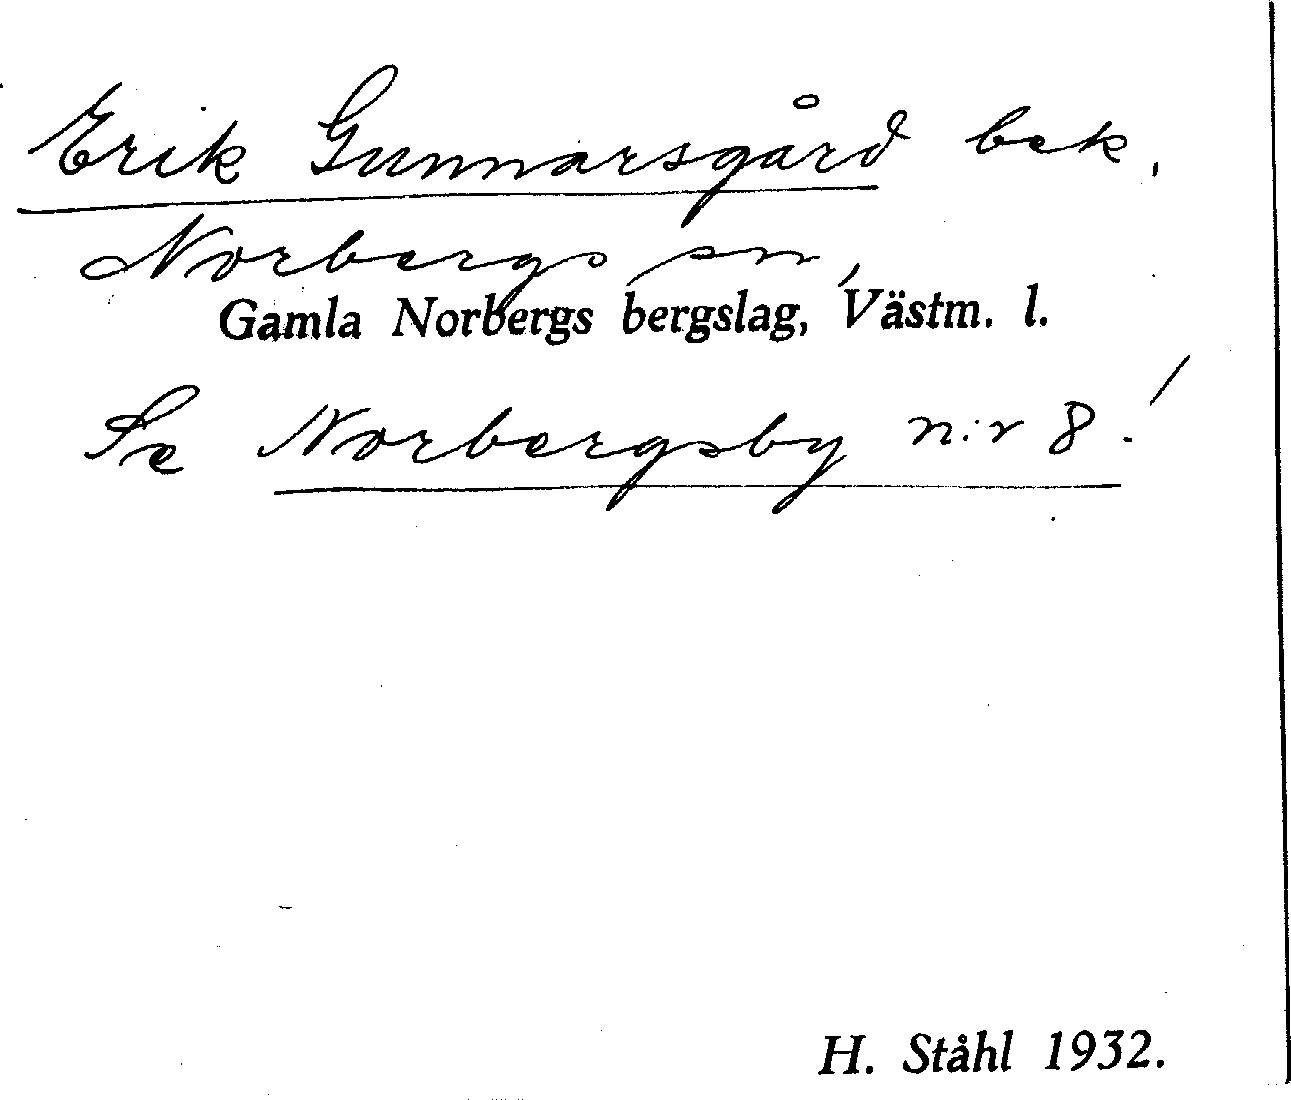 Erik Gunnarsgård bek.
Norbergs sn,
Gamla Norbergs bergslag, Västm. l.
Se Norbergsby n:r 8!
H. Ståhl 1932.